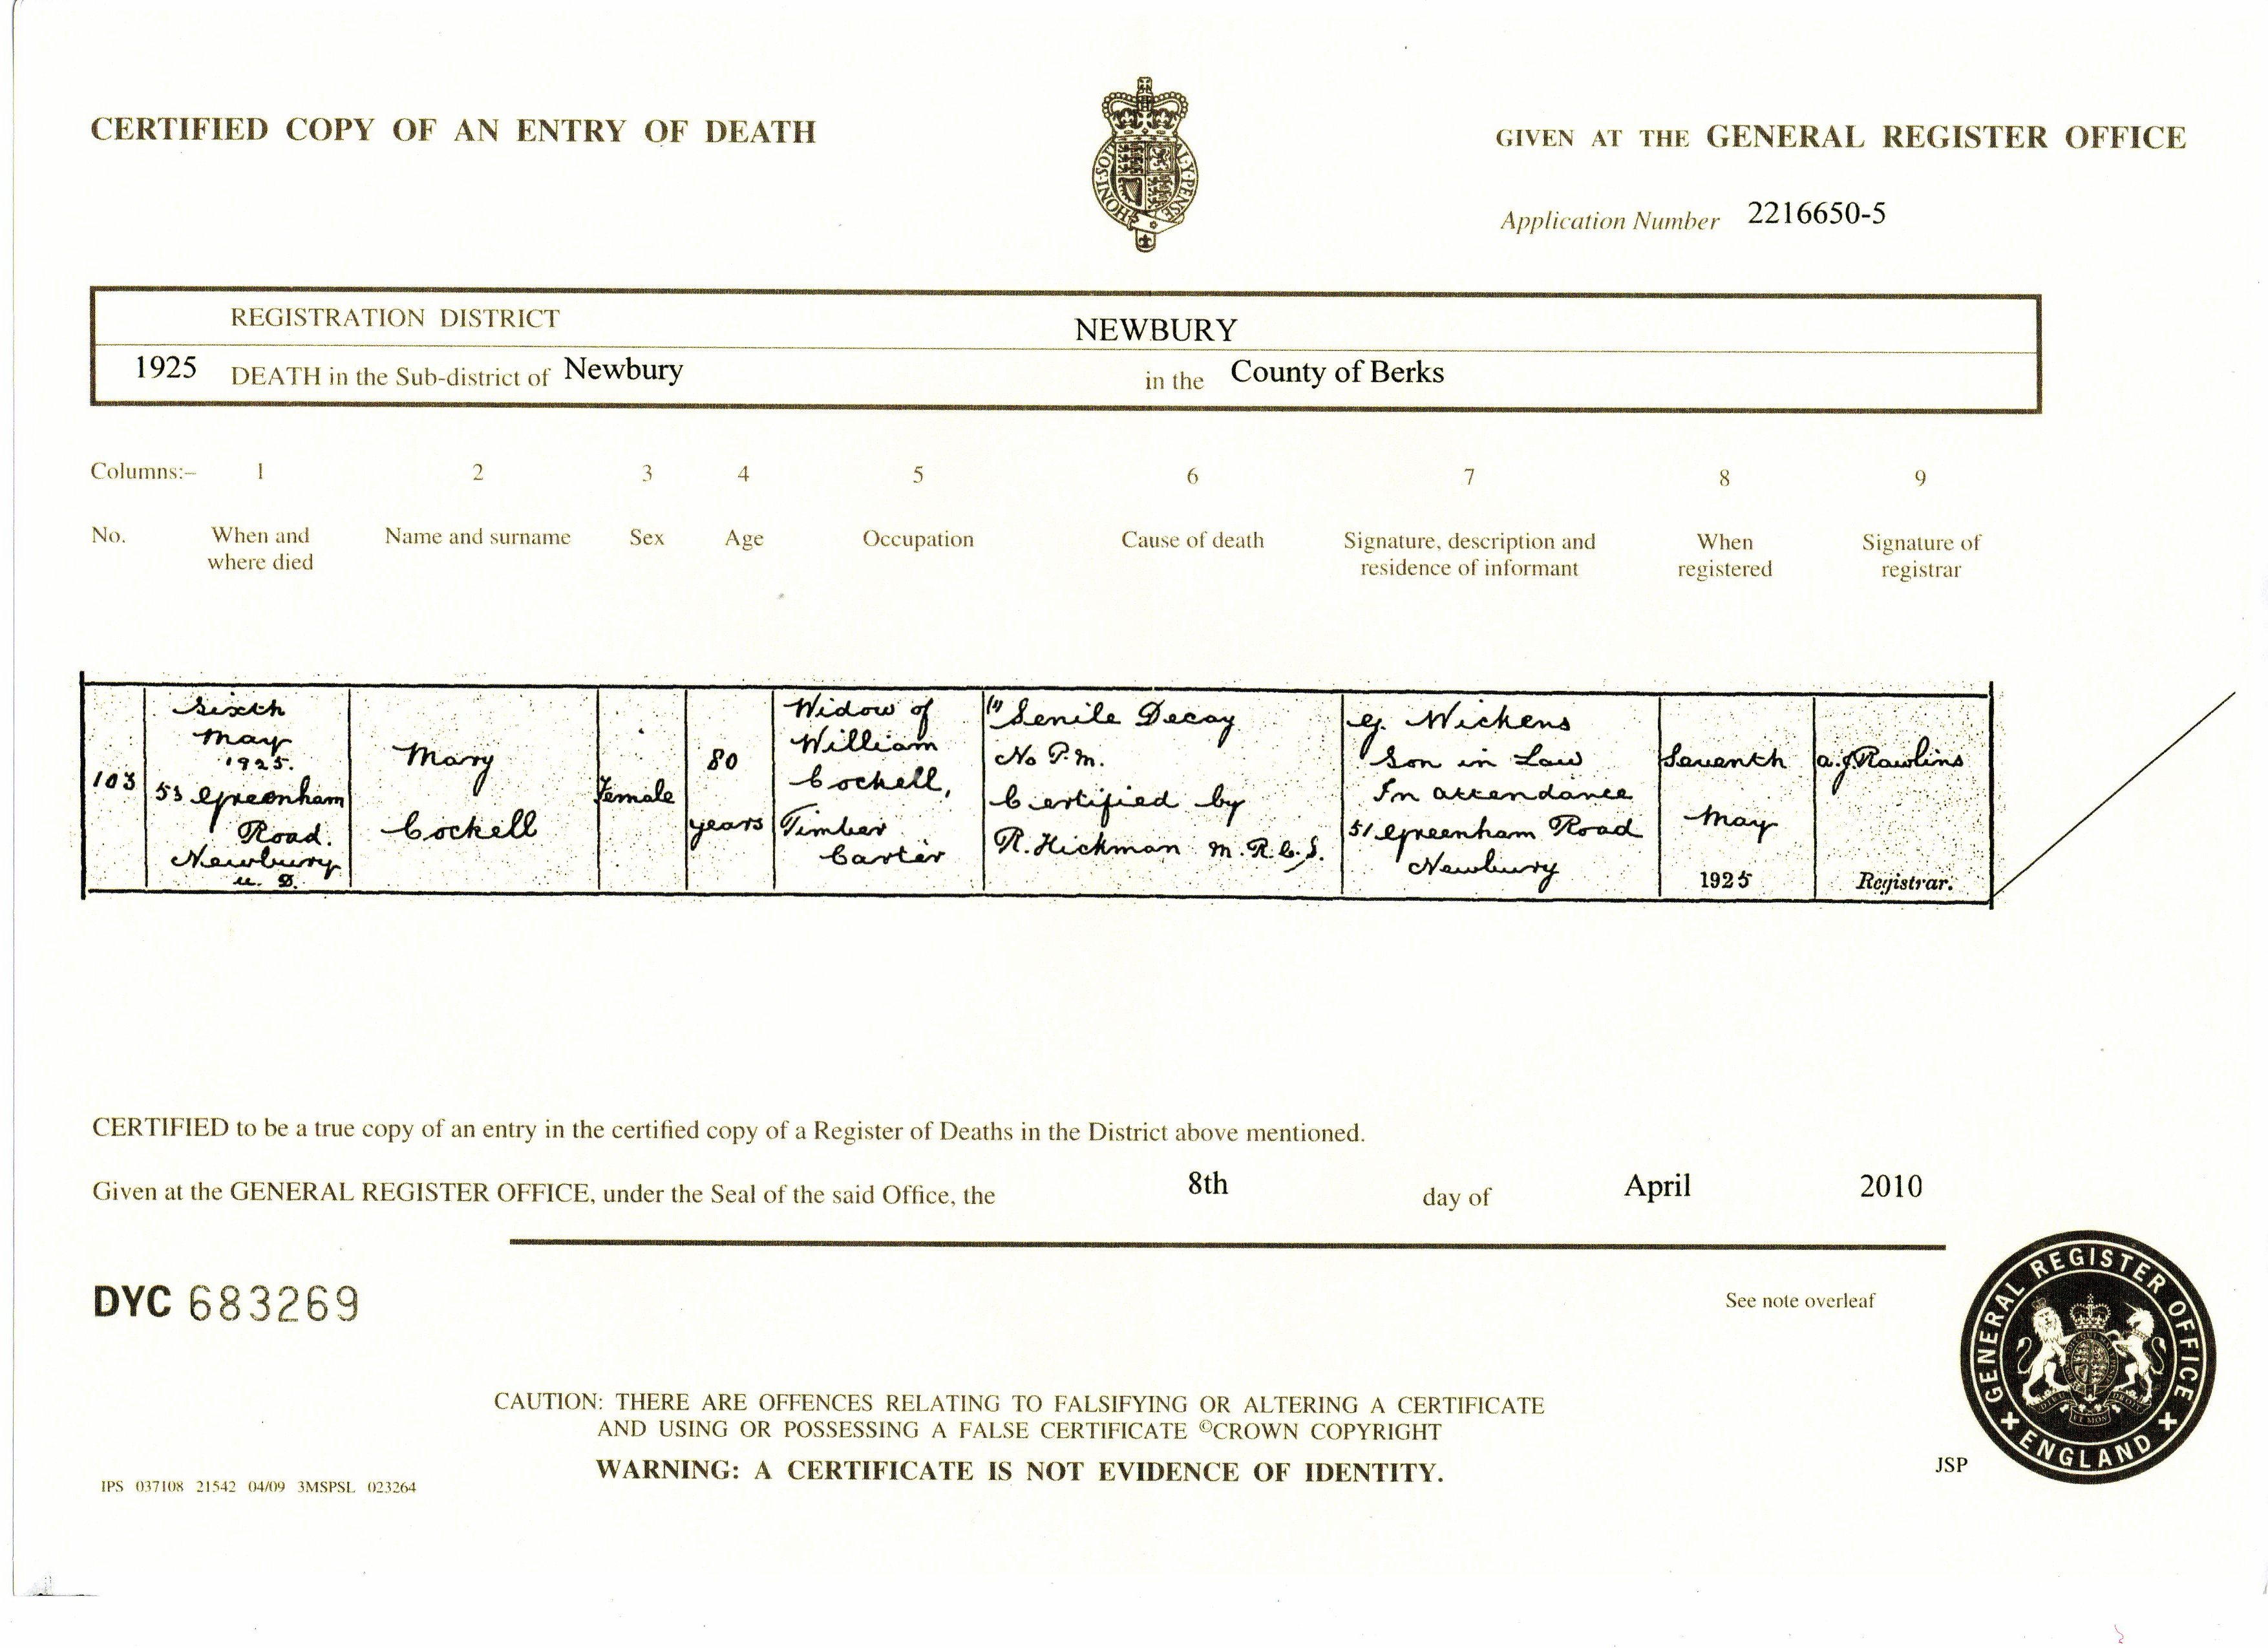 CERTIFIED COPY OF AN ENTRY OF DEATH
HONI·SOIT AL·Y·PENSE
GIVEN AT THE GENERAL REGISTER OFFICE
Application Number 2216650-5
REGISTRATION DISTRICT NEWBURY
1925 DEATH in the Sub-district of Newbury in the County of Berks
Columns:– 1 2 3 4 5 6 7 8 9
No. When and where died Name and surname Sex Age Occupation Cause of death Signature, description and residence of informant When registered Signature of registrar
103
Sixth
May
1925.
53 Greenham
Road.
Newbury
U. D.
Mary
Cockell
Female
80
years
Widow of
William
Cockell,
Timber
Carter
(1) Senile Decay
No P.M.
Certified by
R. Hickman M.R.C.S.
G. Wickens
Son in Law
In attendance
51 Greenham Road
Newbury
Seventh
May
1925
A. J. Rawlins
Registrar.
CERTIFIED to be a true copy of an entry in the certified copy of a Register of Deaths in the District above mentioned.
Given at the GENERAL REGISTER OFFICE, under the Seal of the said Office, the 8th day of April 2010
DYC 683269
See note overleaf
CAUTION: THERE ARE OFFENCES RELATING TO FALSIFYING OR ALTERING A CERTIFICATE
AND USING OR POSSESSING A FALSE CERTIFICATE ©CROWN COPYRIGHT
WARNING: A CERTIFICATE IS NOT EVIDENCE OF IDENTITY.
IPS 037108 21542 04/09 3MSPSL 023264
JSP
GENERAL REGISTER OFFICE
ENGLAND